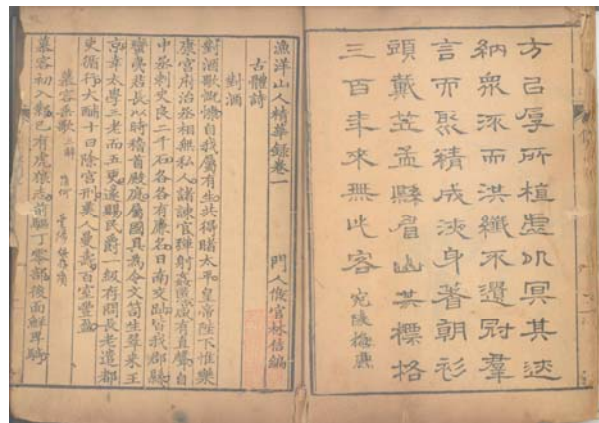 方㠯厚所植虛㠯冥其迹
納衆流而洪纖不遺冠羣
言而聚精成液身著朝衫
頭戴笠孟縣眉山共標格
三百年來無此客 宛陵梅庚
漁洋山人精華録卷一
門人侯官林佶編
古體詩
對酒
對酒歌慨慷自我屬有生共得睹太平皇帝陛下惟樂
康宮府治丞相無私人諸諫官彈射姦慝廣有直聲自
中丞刺史良二千石各各有廉名日南交趾皆我郡縣
蠻夷君長以時稽首殿庭屬國具為令文笥生翠來王
京幸太學三老而五更遂賜民爵一級存問長老遣都
吏循行大酺十日除官刑人曼壽百室豐盈
慕容垂歌三解
慕容初入鄴已有虎狼志前驅丁零部後面鮮卑騎